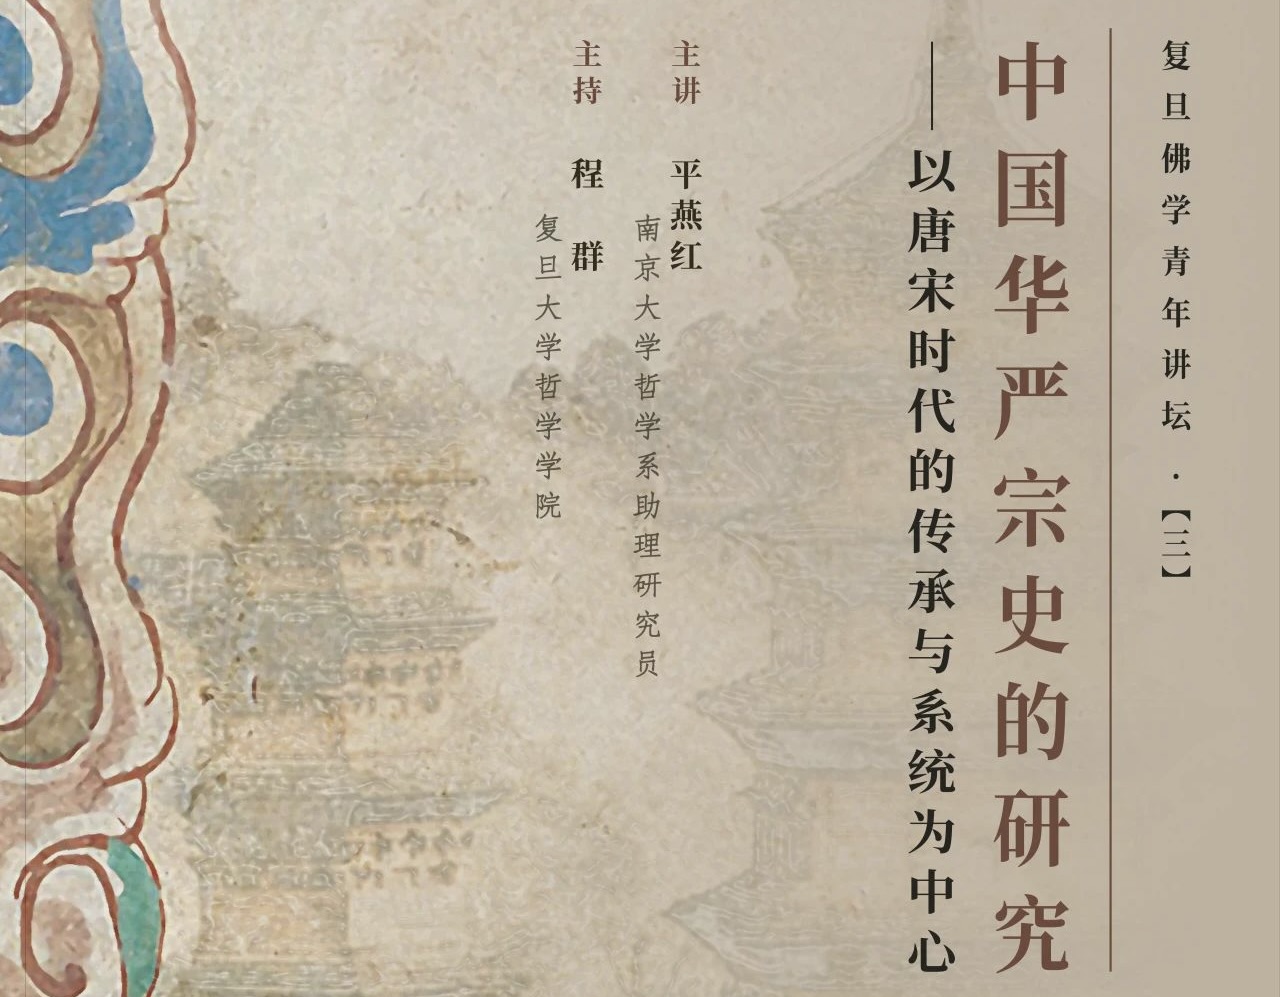 复旦佛学青年讲坛·【三】
中国华严宗史的研究
——以唐宋时代的传承与系统为中心
主讲 平燕红
南京大学哲学系助理研究员
主持 程群
复旦大学哲学学院